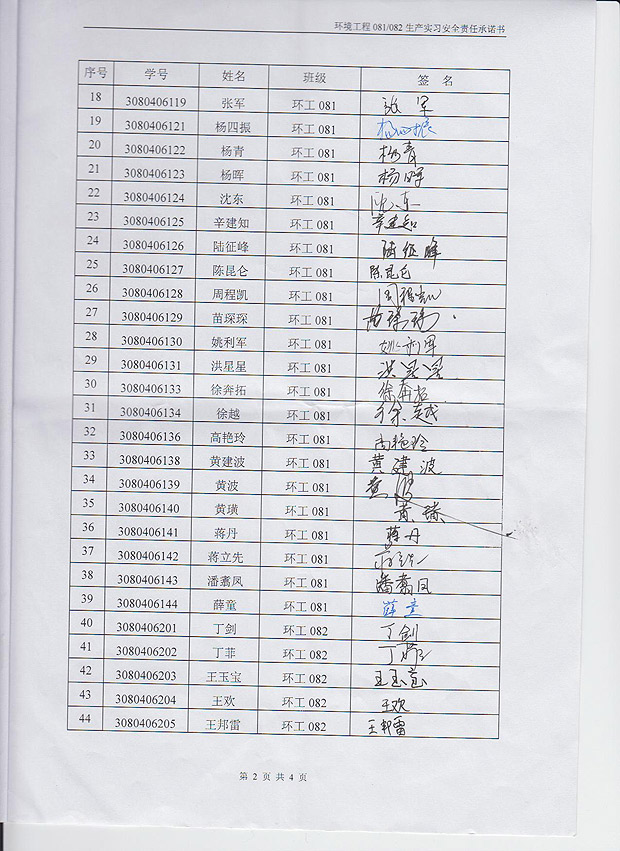 环境工程 081/082 生产实习安全责任承诺书
序号 学号 姓名 班级 签 名
18 3080406119 张军 环工 081 张 军
19 3080406121 杨四振 环工 081 杨四振
20 3080406122 杨青 环工 081 杨青
21 3080406123 杨晖 环工 081 杨晖
22 3080406124 沈东 环工 081 沈东
23 3080406125 辛建知 环工 081 辛建知
24 3080406126 陆征峰 环工 081 陆征峰
25 3080406127 陈昆仑 环工 081 陈昆仑
26 3080406128 周程凯 环工 081 周程凯
27 3080406129 苗琛琛 环工 081 苗琛琛
28 3080406130 姚利军 环工 081 姚利军
29 3080406131 洪星星 环工 081 洪星星
30 3080406133 徐奔拓 环工 081 徐奔拓
31 3080406134 徐越 环工 081 徐越
32 3080406136 高艳玲 环工 081 高艳玲
33 3080406138 黄建波 环工 081 黄建波
34 3080406139 黄波 环工 081 黄波
35 3080406140 黄璜 环工 081
36 3080406141 蒋丹 环工 081 蒋丹
37 3080406142 蒋立先 环工 081 蒋立先
38 3080406143 潘翥凤 环工 081 潘翥凤
39 3080406144 薛童 环工 081 薛童
40 3080406201 丁剑 环工 082 丁剑
41 3080406202 丁菲 环工 082 丁菲
42 3080406203 王玉宝 环工 082 王玉宝
43 3080406204 王欢 环工 082 王欢
44 3080406205 王邦雷 环工 082 王邦雷
第 2 页 共 4 页